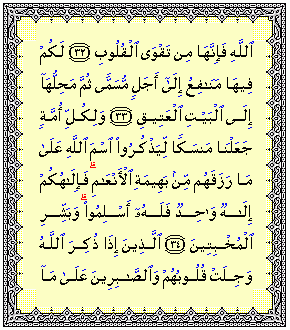 ٱللَّهِ فَإِنَّهَا مِن تَقْوَى ٱلْقُلُوبِ ٣٢ لَكُمْ
فِيهَا مَنَٰفِعُ إِلَىٰٓ أَجَلٍ مُّسَمًّى ثُمَّ مَحِلُّهَآ
إِلَى ٱلْبَيْتِ ٱلْعَتِيقِ ٣٣ وَلِكُلِّ أُمَّةٍ
جَعَلْنَا مَنسَكًا لِّيَذْكُرُوا۟ ٱسْمَ ٱللَّهِ عَلَىٰ
مَا رَزَقَهُم مِّنۢ بَهِيمَةِ ٱلْأَنْعَٰمِ ۗ فَإِلَٰهُكُمْ
إِلَٰهٌ وَٰحِدٌ فَلَهُۥٓ أَسْلِمُوا۟ ۗ وَبَشِّرِ
ٱلْمُخْبِتِينَ ٣٤ ٱلَّذِينَ إِذَا ذُكِرَ ٱللَّهُ
وَجِلَتْ قُلُوبُهُمْ وَٱلصَّٰبِرِينَ عَلَىٰ مَآ